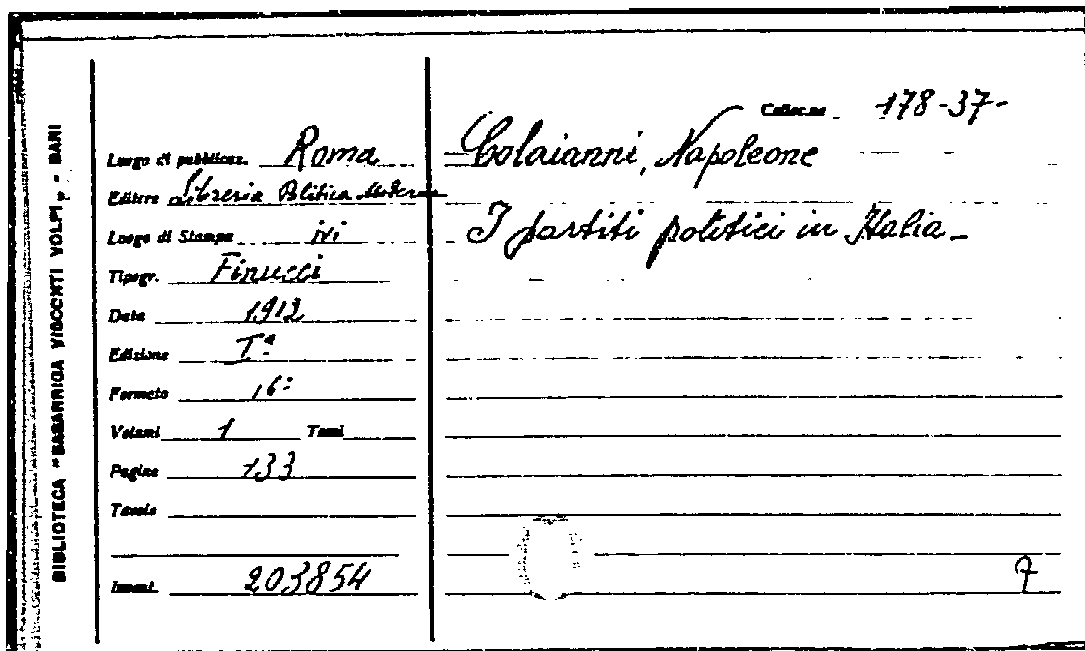 BIBLIOTECA "SAGARRIGA VISCONTI VOLPI" - BARI
Collocne 178-37-
Luogo di pubblicaz. Roma
Editore Libreria Politica Moderna
Luogo di Stampa ivi
Tipogr. Finucci
Data 1912
Edizione Iª
Formato 16°
Volumi 1 Tomi
Pagine 133
Tavole
Invent. 203854
Colaianni, Napoleone
I partiti politici in Italia_
7